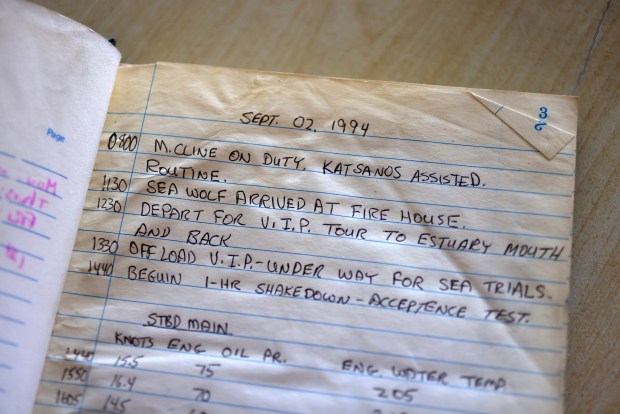 Page
32
SEPT. 02, 1994
0800 M. CLINE ON DUTY. KATSANOS ASSISTED.
ROUTINE.
1130 SEA WOLF ARRIVED AT FIRE HOUSE.
1230 DEPART FOR V.I.P. TOUR TO ESTUARY MOUTH
AND BACK
1330 OFFLOAD V.I.P.-UNDER WAY FOR SEA TRIALS.
1440 BEGUIN 1-HR SHAKEDOWN-ACCEPTENCE TEST.
STBD MAIN
KNOTS ENG OIL PR. ENG. WATER TEMP.
1440 15.5 75 205
1550 16.4 70
1605 14.5